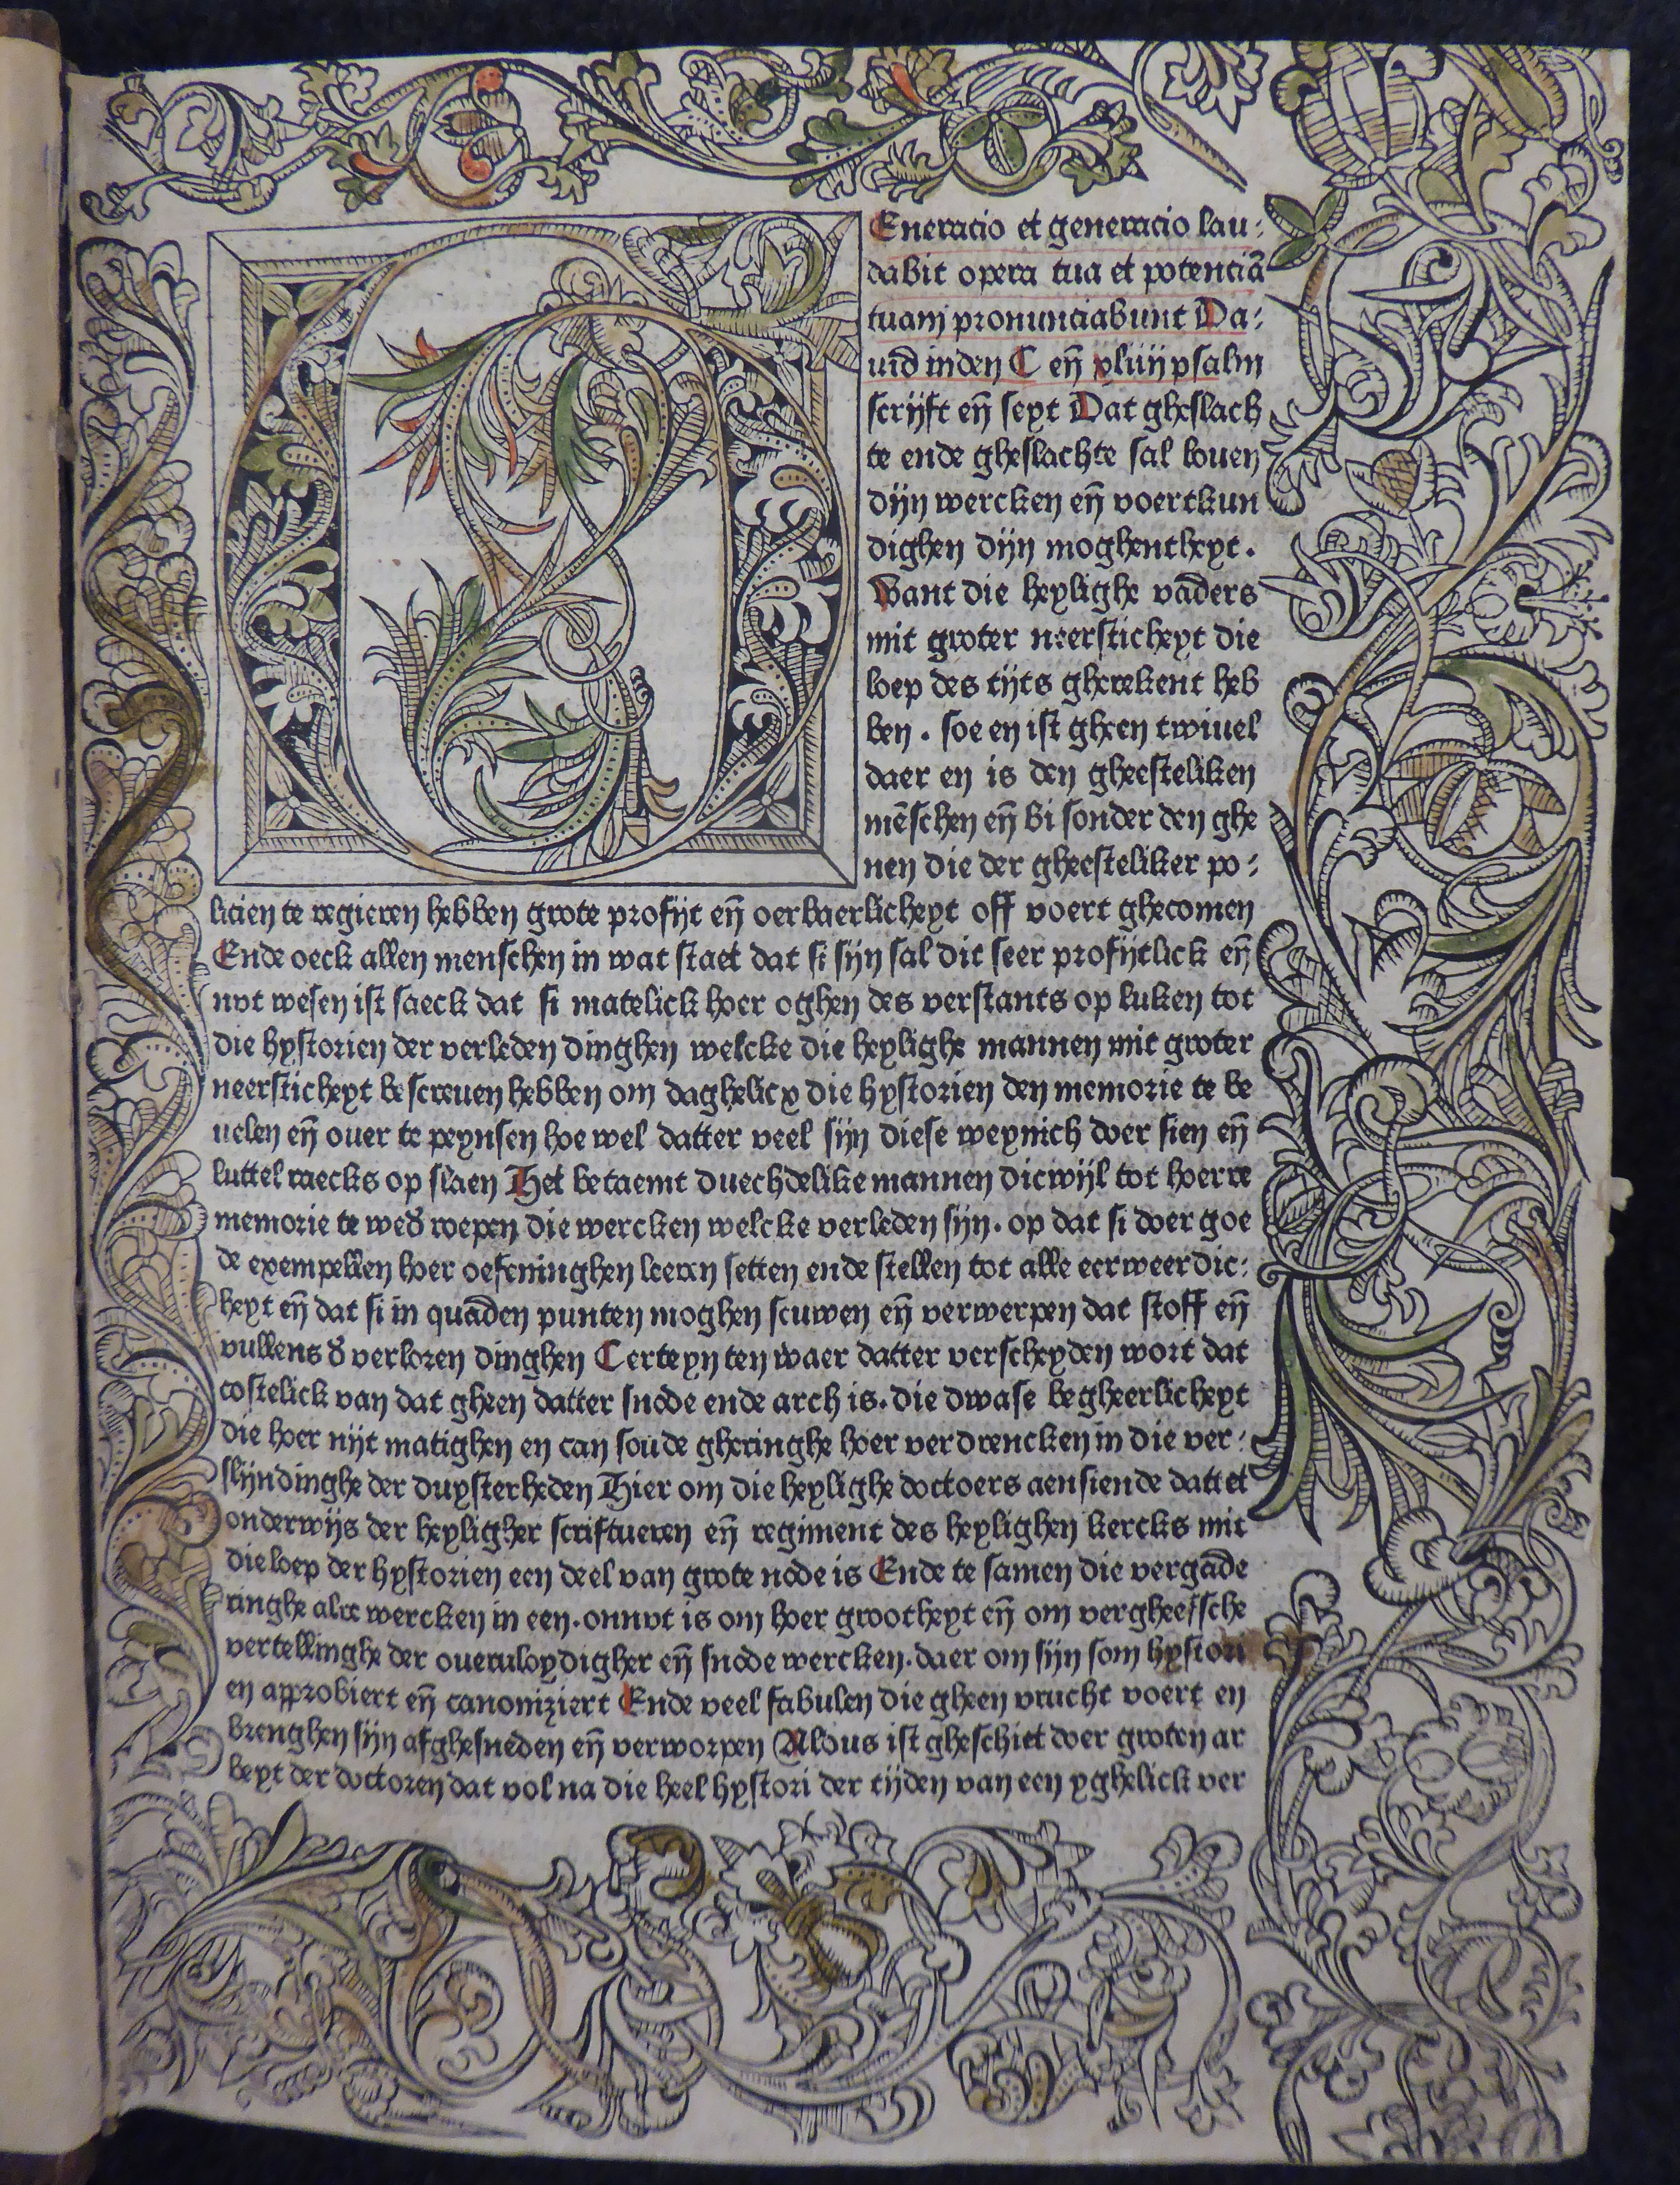 Eneracio et generacio lau⸗
dabit opera tua et potenciā
tuam pronunciabunt Da⸗
uid inden C eñ xliiij psalm
scrijft eñ seyt Dat gheslach
te ende gheslachte sal louen
dijn wercken eñ voertkun
dighen dijn moghentheyt.
Want die heylighe vaders
mit groter neersticheyt die
loep des tijts gherekent heb
ben. soe en ist gheen twiuel
daer en is den gheesteliken
mēschen eñ bi sonder den ghe
nen die der gheesteliker po⸗
licien te regieren hebben grote profijt eñ oerbaerlicheyt off voert ghecomen
Ende oeck allen menschen in wat staet dat si sijn sal dit seer profijtlick eñ
nvt wesen ist saeck dat si matelick hoer oghen des verstants op luken tot
die hystorien der verleden dinghen welcke die heylighe mannen mit groter
neersticheyt bescreuen hebben om daghelicx die hystorien den memorie te be
uelen eñ ouer te peynsen hoe wel datter veel sijn diese weynich doer sien eñ
luttel raecks op slaen Het betaemt duechdelike mannen dicwijl tot hoerre
memorie te wed̛ roepen die wercken welcke verleden sijn. op dat si doer goe
de exempellen hoer oefeninghen leeren setten ende stellen tot alle eerweerdic⸗
heyt eñ dat si in quaden punten moghen scuwen eñ verwerpen dat stoff eñ
vullens d̛ verloren dinghen Certeyn ten waer datter verscheyden wort dat
costelick van dat gheen datter snode ende arch is. die dwase begheerlicheyt
die hoer nijt matighen en can soude gheringhe hoer verdrencken in die ver⸗
slijndinghe der duysterheden Hier om die heylighe doctoers aensiende dattet
onderwijs der heyligher scriftueren eñ regiment des heylighen kercks mit
die loep der hystorien een deel van grote node is Ende te samen die vergade
ringhe alre wercken in een. onnvt is om hoer grootheyt eñ om vergheefsche
vertellinghe der oueruloydigher eñ snode wercken. daer om sijn som hystori
en approbiert eñ canoniziert Ende veel fabulen die gheen vrucht voert en
brenghen sijn afghesneden eñ verworpen Aldus ist gheschiet doer groten ar
beyt der doctoren dat vol na die heel hystori der tijden van een yghelick ver